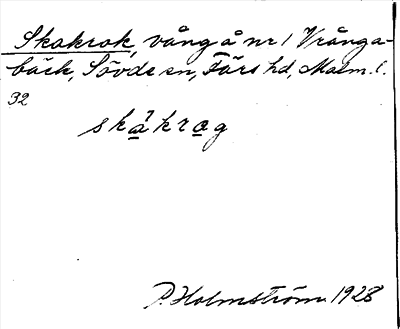 Skakrok, vång å nr 1 Vrånga-
bäck, Sövde sn, Färs hd, Malm. l.
32
skàkrog
P. Holmström 1928